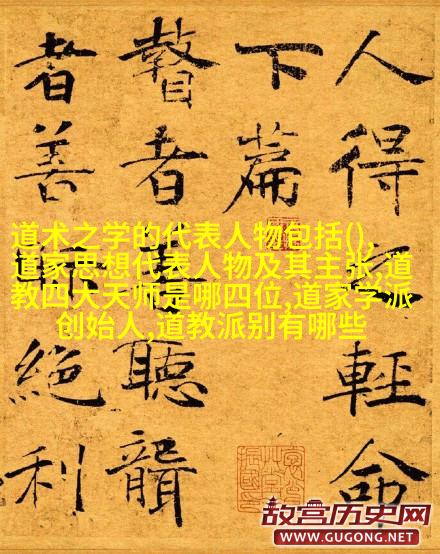 人得之輕命
下篇
瞽者善聽聾
者善視絕利
道术之学的代表人物包括(),
道家思想代表人物及其主张,道
教四大天师是哪四位,道家学派
创始人,道教派别有哪些
故宫历史网
WWW.GUGONG.NET